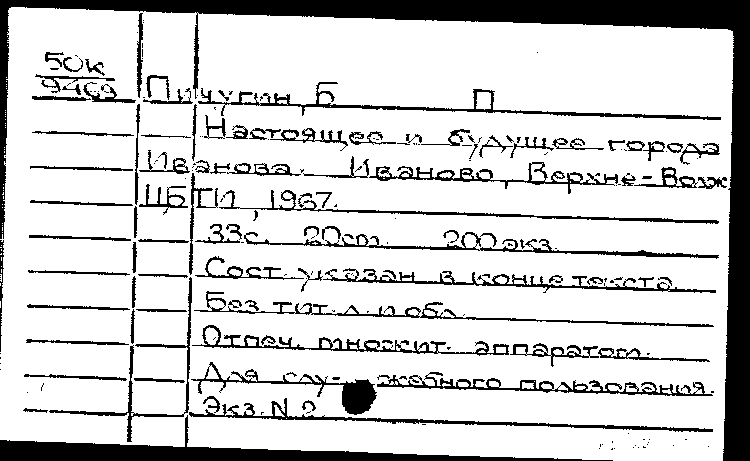 50к
9469
Пичугин, Б П
Настоящее и будущее города
Иванова. Иваново, Верхне-Волж
ЦБТИ, 1967.
33с. 20см. 200экз.
Сост. указан в конце текста.
Без тит. л. и обл.
Отпеч. множит. аппаратом.
Для слу- жебного пользования.
Экз. N 2